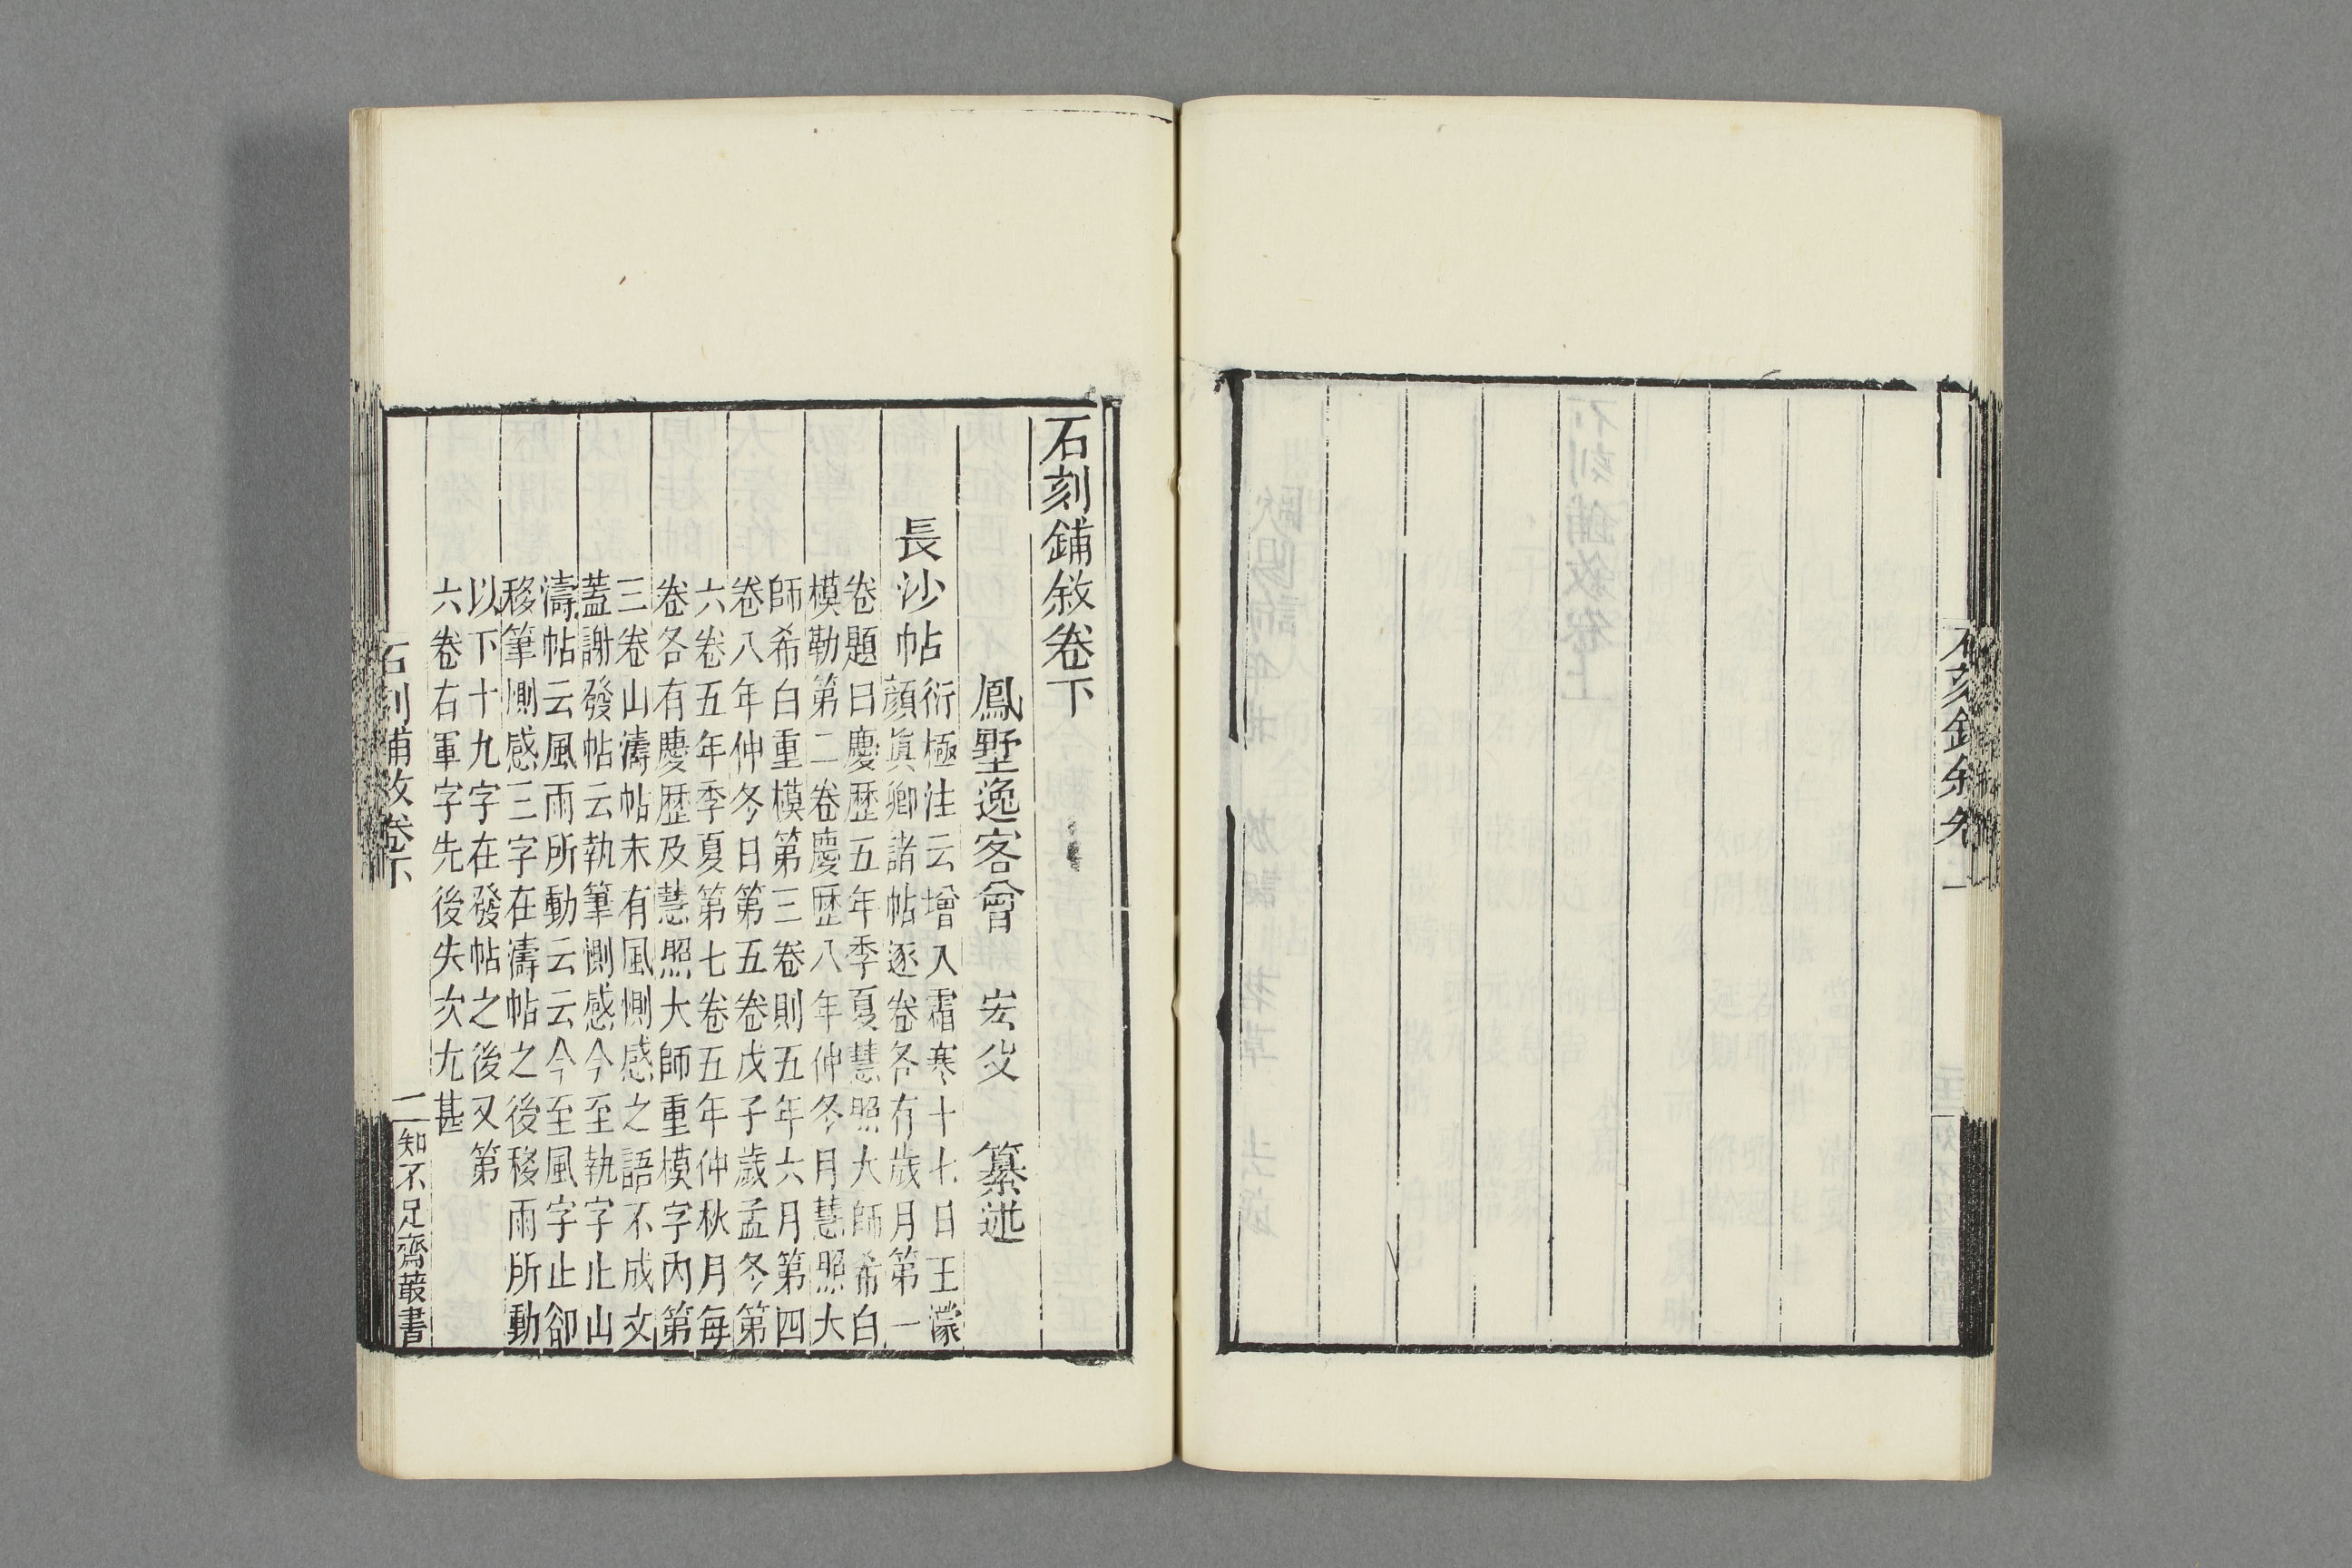 石刻鋪敘卷
石刻鋪敘卷下
鳳墅逸客曾　宏父　纂述
長沙帖
衍極注云增入霜寒十七日王濛
顏眞卿諸帖逐卷各有歲月第一
卷題曰慶歷五年季夏慧照大師希白
模勒第二卷慶歷八年仲冬月慧照大
師希白重模第三卷則五年六月第四
卷八年仲冬日第五卷戊子歲孟冬第
六卷五年季夏第七卷五年仲秋月每
卷各有慶歷及慧照大師重模字內第
三卷山濤帖末有風惻感之語不成文
蓋謝發帖云執筆惻感今至執字止山
濤帖云風雨所動云云今至風字止卻
移筆惻感三字在濤帖之後移雨所動
以下十九字在發帖之後又第
六卷右軍字先後失次尤甚
石刻鋪敘卷下　二　知不足齋叢書